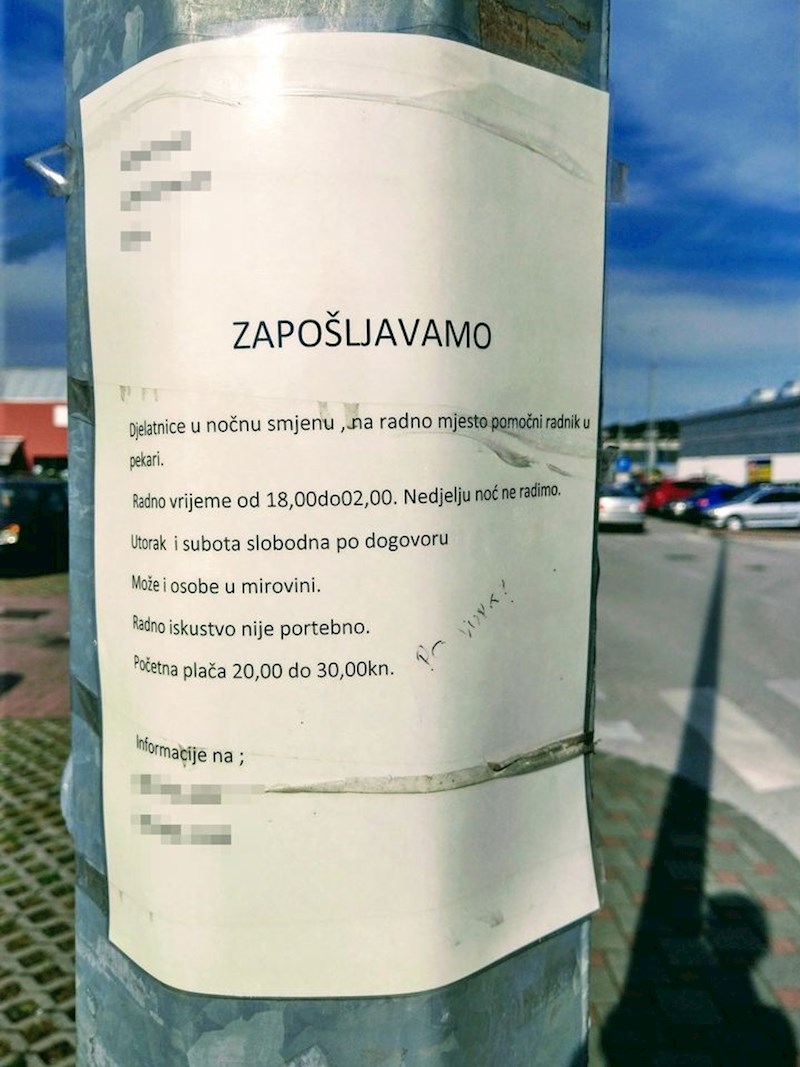 ZAPOŠLJAVAMO
Djelatnice u nočnu smjenu , na radno mjesto pomočni radnik u
pekari.
Radno vrijeme od 18,00do02,00. Nedjelju noć ne radimo.
Utorak i subota slobodna po dogovoru
Može i osobe u mirovini.
Radno iskustvo nije portebno.
Početna plača 20,00 do 30,00kn.
Informacije na ;